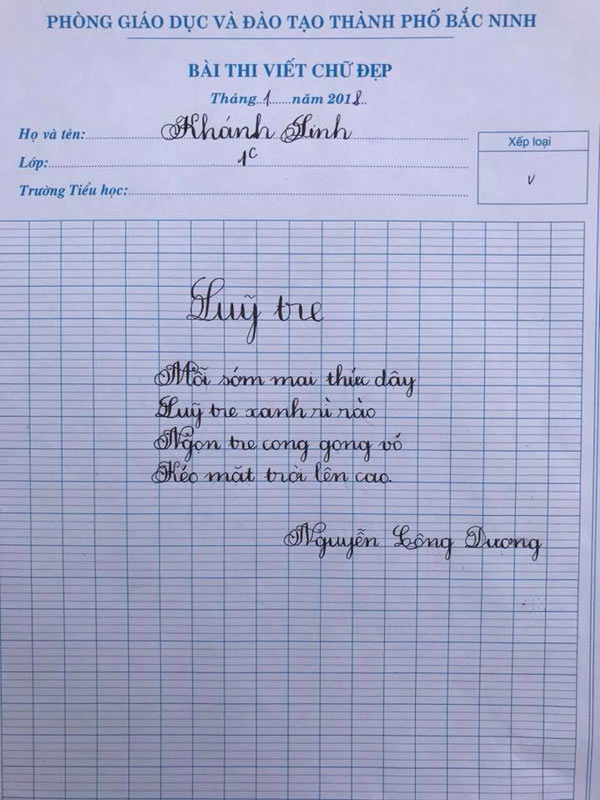 PHÒNG GIÁO DỤC VÀ ĐÀO TẠO THÀNH PHỐ BẮC NINH
BÀI THI VIẾT CHỮ ĐẸP
Tháng..1......năm 2018..
Họ và tên: Khánh Linh
Lớp: 1C
Trường Tiểu học:
Xếp loại
V
Luỹ tre
Mỗi sớm mai thức dậy
Luỹ tre xanh rì rào
Ngọn tre cong gọng vó
Kéo mặt trời lên cao.
Nguyễn Công Dương